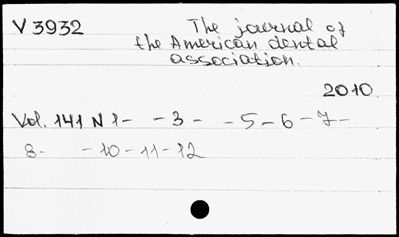 V 3932
The journal of
the American dental
association.
2010
Vol. 141 N 1- -3- -5-6-7-
8- -10-11-12